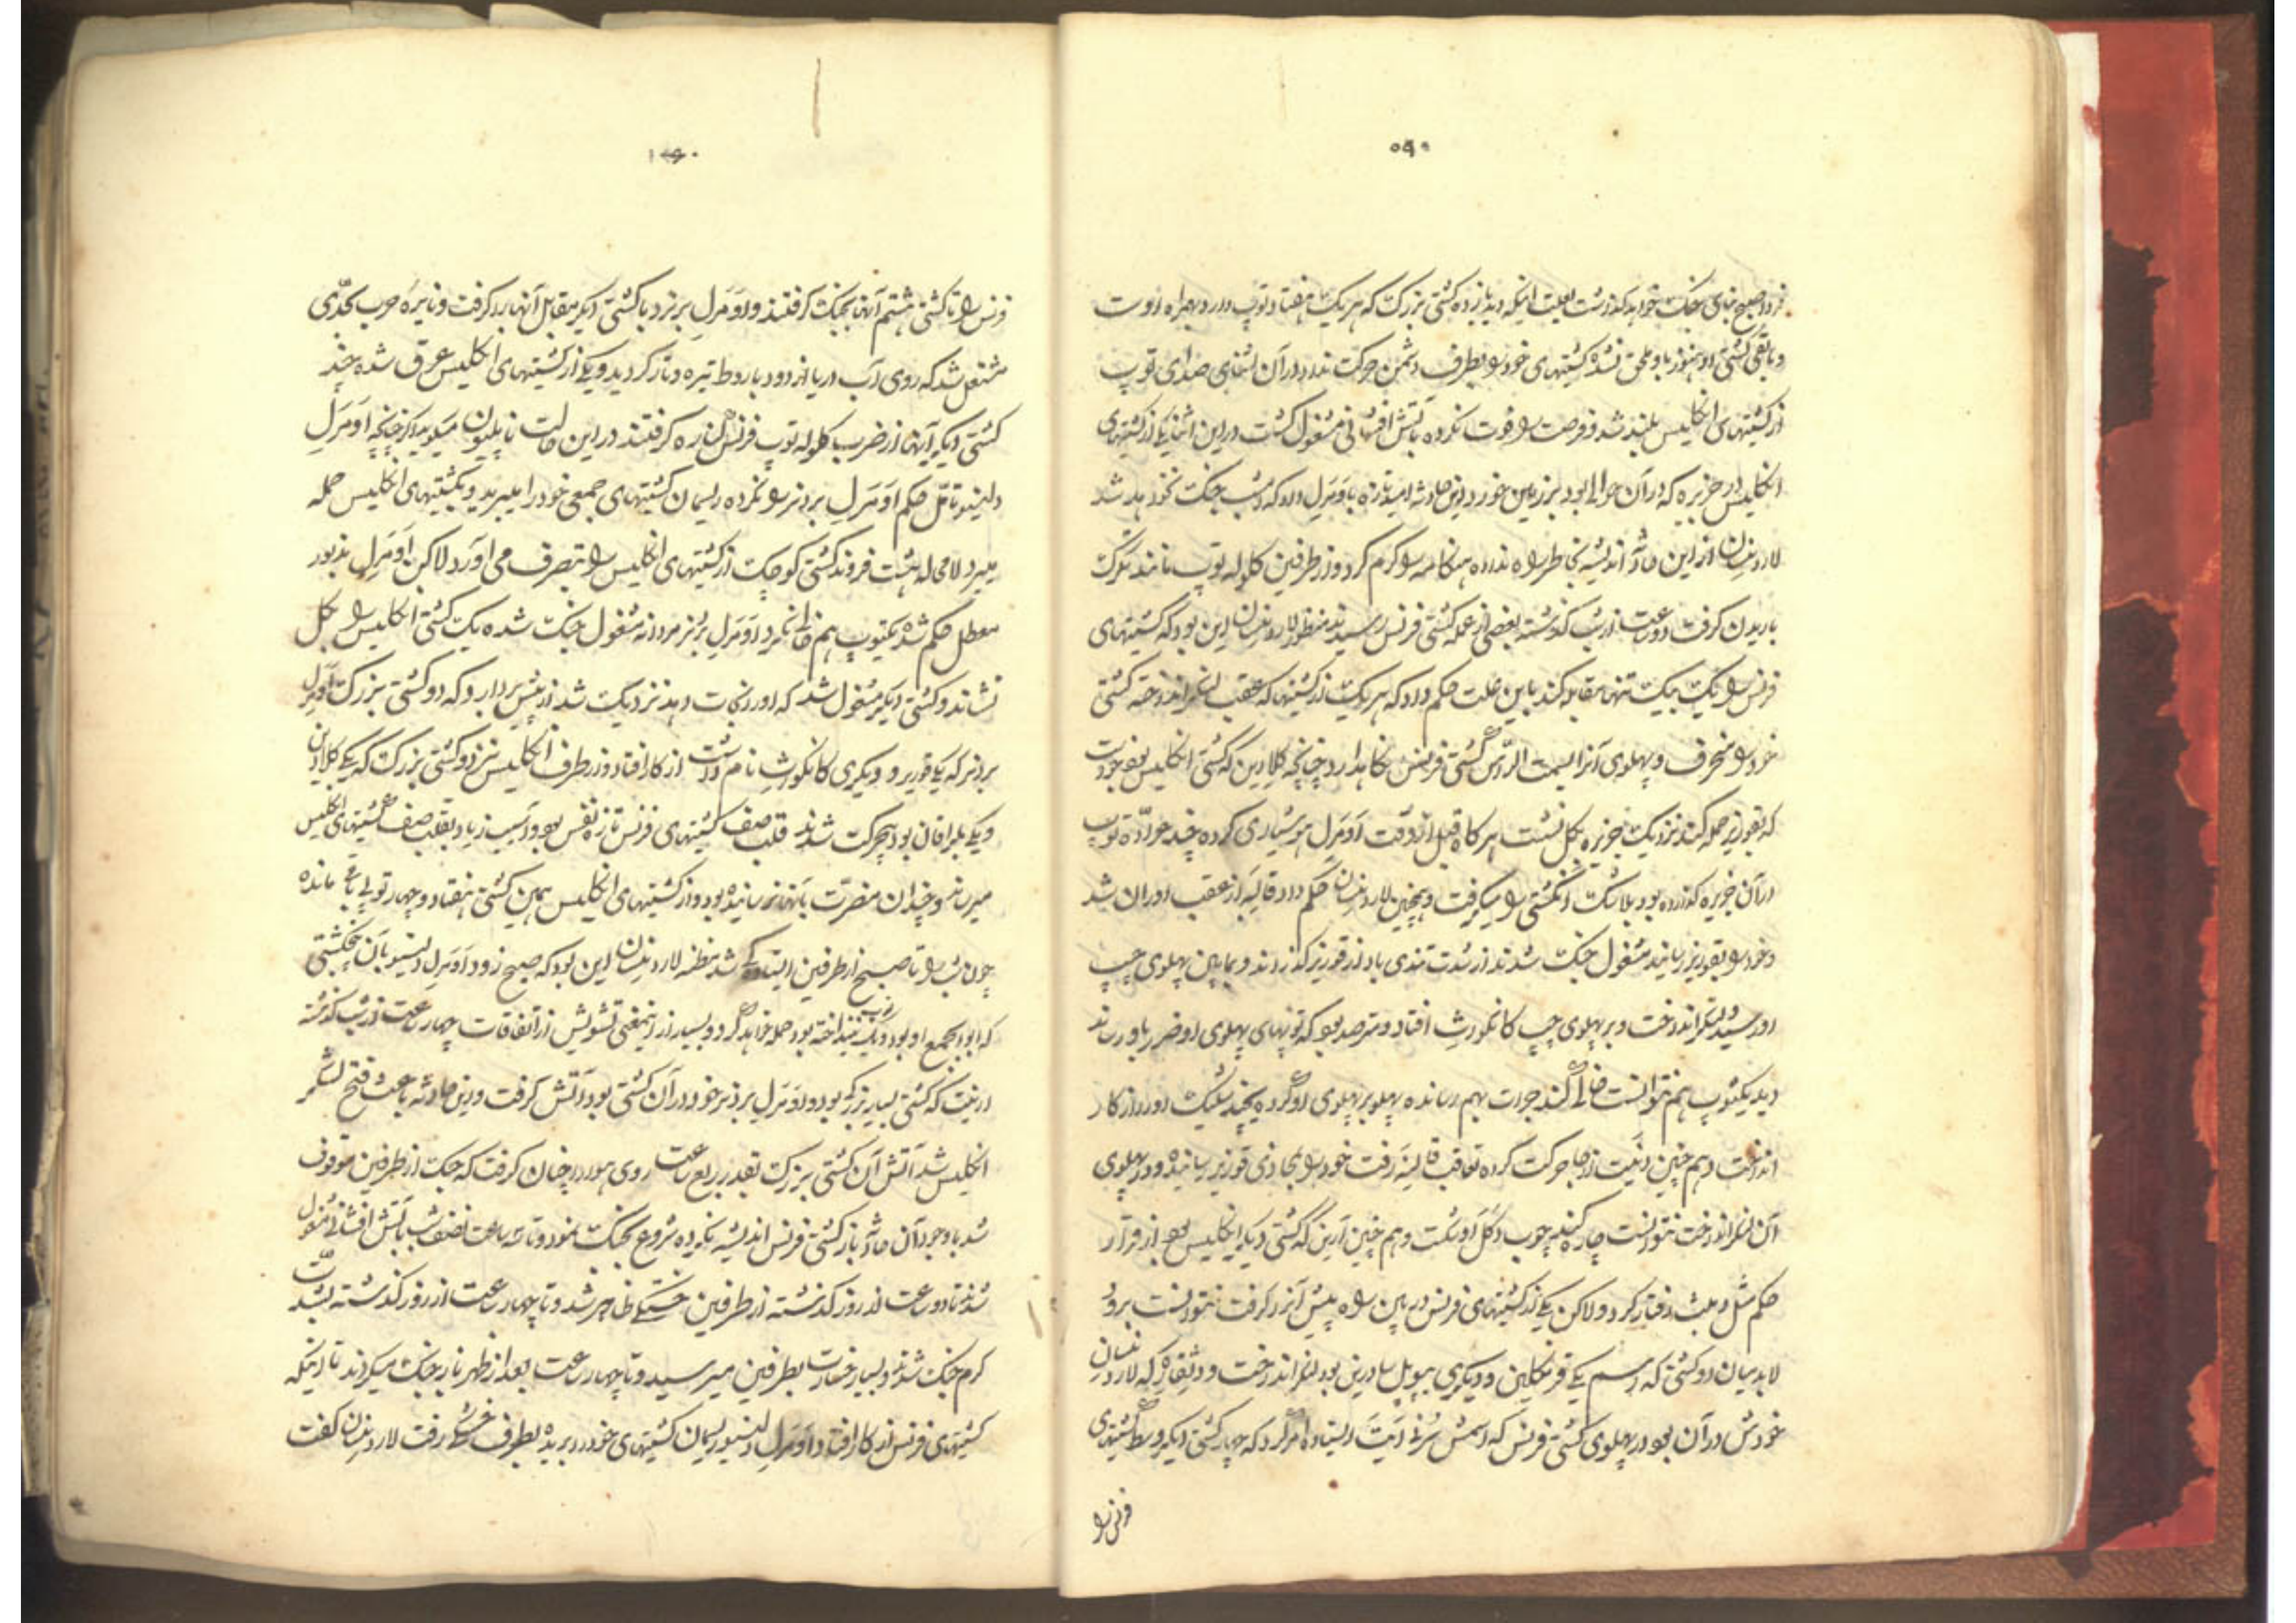 فردا صبح بنای جنک خواهد کذاشت بعلت اینکه دید یازده کشتی بزرک که هر یک هفتاد توپ دارد بهمراه اوست
و باقی کشتی او هنوز باو ملحق نشده کشتیهای خود را بطرف دشمن حرکت نداد در آن اثنای صدای توپ
از کشتیهای انکلیس بلند شد و فرصت را فوت نکرده بآتش افشانی مشغول کشت در این اثنا یکی از کشتیهای
انکلیس در جزیره که در آن حوالی بود بر زمین خورد این حادثه امید تازه باومرل داد که شب جنک نخواهد شد
لارد نیلسان از این ماده اندیشه بخاطر راه نداده هنکامه را کرم کرد و از طرفین کلوله توپ مانند تکرک
باریدن کرفت دو ساعت از شب کذشته بعضی از عمله کشتی فرنس رسیدند منظور لارد نیلسان این بود که کشتیهای
فرنس را یک بیک تنها مقابله کند باین علت حکم داد که هر یک از کشتیها که عقب لنکر انداخته کشتی
خود را منحرف و پهلوی آنرا بسمت الراس کشتی فرنس نکاهدارد چنانچه کلادین که کشتی انکلیس بود خواست
که بقوریر حمله کند نزدیک جزیره بکل نشست هر کاه قبل از وقت اومرل هوشیاری کرده چند عراده توپ
در آن جزیره کذارده بود بلاشک آن کشتی را میکرفت و همچنین لارد نیلسان حکم داد قالیه از عقب او روان شد
و خود را بقوریر رسانید مشغول جنک شدند از شدت تندی باد از قوریر کذراند و بمابین پهلوی چپ
او رسید و لنکر انداخت و بر پهلوی چپ کانکورث افتاد و مترصد بود که توپهای پهلوی او ضرر باو رساند
دید یکتوپ هم نتوانست خالی کند جرات بهم رسانده پهلو بر پهلوی او کرده بچند شلیک او را از کار
انداخت و هم چنین دنیت از جا حرکت کرده تعاقب قالیه رفت خود را بمحاذی قوریر رسانیده و در پهلوی
آن لنکر انداخت نتوانست چاره کند چوب دکل او شکست و هم چنین آرین که کشتی دیکر انکلیس بود از قرار
حکم مثل دنیت رفتار کرد و لاکن یکی از کشتیهای فرنس در بین راه پیش آنرا کرفت نتوانست برود
لابد میان دو کشتی که اسم یکی فرنکلین و دیکری پیوپل سادرین بود لنکر انداخت و دنقارد که لارد نیلسان
خودش در آن بود در پهلوی کشتی فرنس که اسمش ایستاد امر کرد که چهار کشتی دیکر وسط کشتیهای
فرنس را
فرنس را تا کشتی هشتم آنها بجنک کرفتند و اومرل برنز با کشتی دیکر مقابل آنها برد کرفت و نایره حرب بحدی
مشتعل شد که روی آب دریا از دود باروط تیره و تار کردید و یکی از کشتیهای انکلیس غرق شده چند
کشتی دیکر آنها از ضرب کلوله توپ فرنس کناره کرفتند در این حالت ناپلیون میکوید اکر چنانچه اومرل
دلینو تامل حکم اومرل برنز را نکرده ریسمان کشتیهای جمعی خود را میبرید و بکشتیهای انکلیس حمله
میبرد لامحاله هشت فروند کشتی کوچک از کشتیهای انکلیس را بتصرف می آورد لاکن اومرل مذبور
معطل حکم شده یکتوپ هم خالی نکرد و اومرل برنز مردانه مشغول جنک شده یک کشتی انکلیس را بکل
نشاند و کشتی دیکر مشغول شد که او را نجات دهد نزدیک شد از پیش بردارد که دو کشتی بزرک اومرل
برنز که یکی قوریر و دیکری کانکورث نام داشت از کار افتاد و از طرف انکلیس نیز دو کشتی بزرک که یکی کلادین
و یکی بلرافان بود بیحرکت شدند قلب صف کشتیهای فرنس تازه نفس بود و آسیب زیاد بقلب صف کشتیهای انکلیس
میرساند و چندان مضرت بآنها نرسانیده بود و از کشتیهای انکلیس همین کشتی هفتاد و چهار توپی باقی مانده
چون شب را تا صبح از طرفین ایستادکی شد مظنه لارد نیلسان این بود که صبح زود اومرل دلینو با آن پنج کشتی
که ابوابجمع او بود و یک توپ نینداخته بود حمله خواهد کرد و بسیار از اینمعنی تشویش از اتفاقات چهار ساعت از شب کذشته
ارینت که کشتی بسیار بزرکی بود و اومرل برنز خود در آن کشتی بود آتش کرفت و این حادثه باعث فتح لشکر
انکلیس شد آتش آن کشتی بزرک بقدر ربع ساعت روی هوا را چنان کرفت که جنک از طرفین موقوف
شد باوجود آن ماده باز کشتی فرنس اندیشه نکرده شروع بجنک نمود و تا سه ساعت از نصف شب بآتش افشانی مشغول
شدند تا دو ساعت از روز کذشته از طرفین خستکی ظاهر شد و تا چهار ساعت از روز کذشته بشدت
کرم جنک شدند و بسیار خسارت بطرفین میرسید و تا چهار ساعت بعد از ظهر باز جنک میکردند تا اینکه
کشتیهای فرنس از کار افتاد و اومرل دلینو ریسمان کشتیهای خود را بریده بطرف خشکی رفت لارد نیلسان کفت